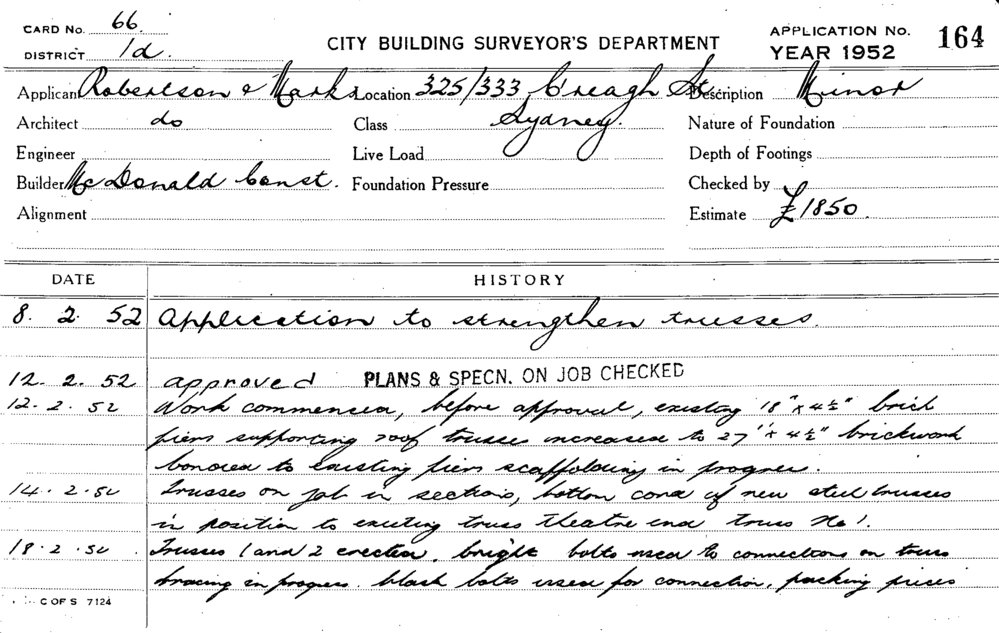 CARD No. 66.
DISTRICT 1d.
CITY BUILDING SURVEYOR'S DEPARTMENT
APPLICATION No. 164
YEAR 1952
Applicant Robertson & Marks Location 325/333 C'reagh St Description Minor
Architect do Class Sydney. Nature of Foundation
Engineer Live Load Depth of Footings
Builder McDonald Const. Foundation Pressure Checked by
Alignment Estimate £1850.
DATE HISTORY
8. 2. 52 Application to strengthen trusses.
12. 2. 52 approved PLANS & SPECN. ON JOB CHECKED
12. 2. 52 Work commenced, before approval, existing 18" x 4½" brick
piers supporting roof trusses increased to 27" x 4½" brickwork
bonded to existing piers scaffolding in progress.
14. 2. 52 Trusses on job in sections, bottom cord of new steel trusses
in position to existing truss theatre end truss No 1.
18. 2. 52 Trusses 1 and 2 erected. bright bolts used to connections on truss
bracing in progress. black bolts used for connection, packing pieces
C OF S 7124